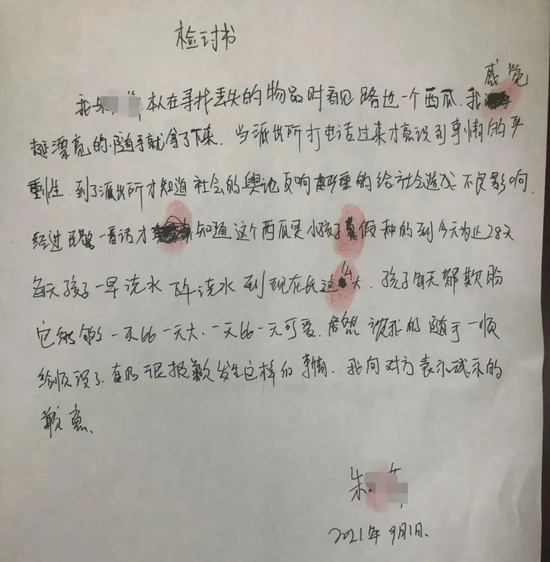 检讨书
我朱 本人在寻找丢失的物品时看见路边一个西瓜.我感觉
挺漂亮的.随手就拿了下来.当派出所打电话过来才意识到事情的严
重性.到了派出所才知道社会的舆论反响 严重的给社会造成不良影响.
经过民警一番话才 知道这个西瓜是小孩子暑假种的到今天为止28天
每天孩子一早浇水 下午浇水 到现在长这么大.孩子每天都期盼
它能够一天比一天大.一天比一天可爱.居然被我的随手一顺
给顺没了.真的很报歉发生这样的事情.我向对方表示诚示的
歉意.
朱
2021.年9月1日.